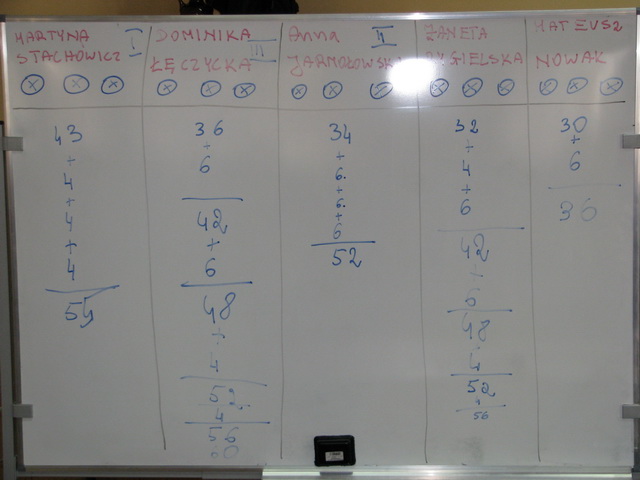 MARTYNA I
STACHOWICZ
43
+
4
+
4
+
4
55
DOMINIKA
ŁĘCZYCKA III
36
+
6
42
+
6
48
+
4
52
4
56
Anna II
JARMOŁOWSKA
34
+
6
+
6
+
6
52
ŻANETA
RYGIELSKA
32
+
4
+
6
42
+
6
48
4
52
+
56
MATEUSZ
NOWAK
30
+
6
36